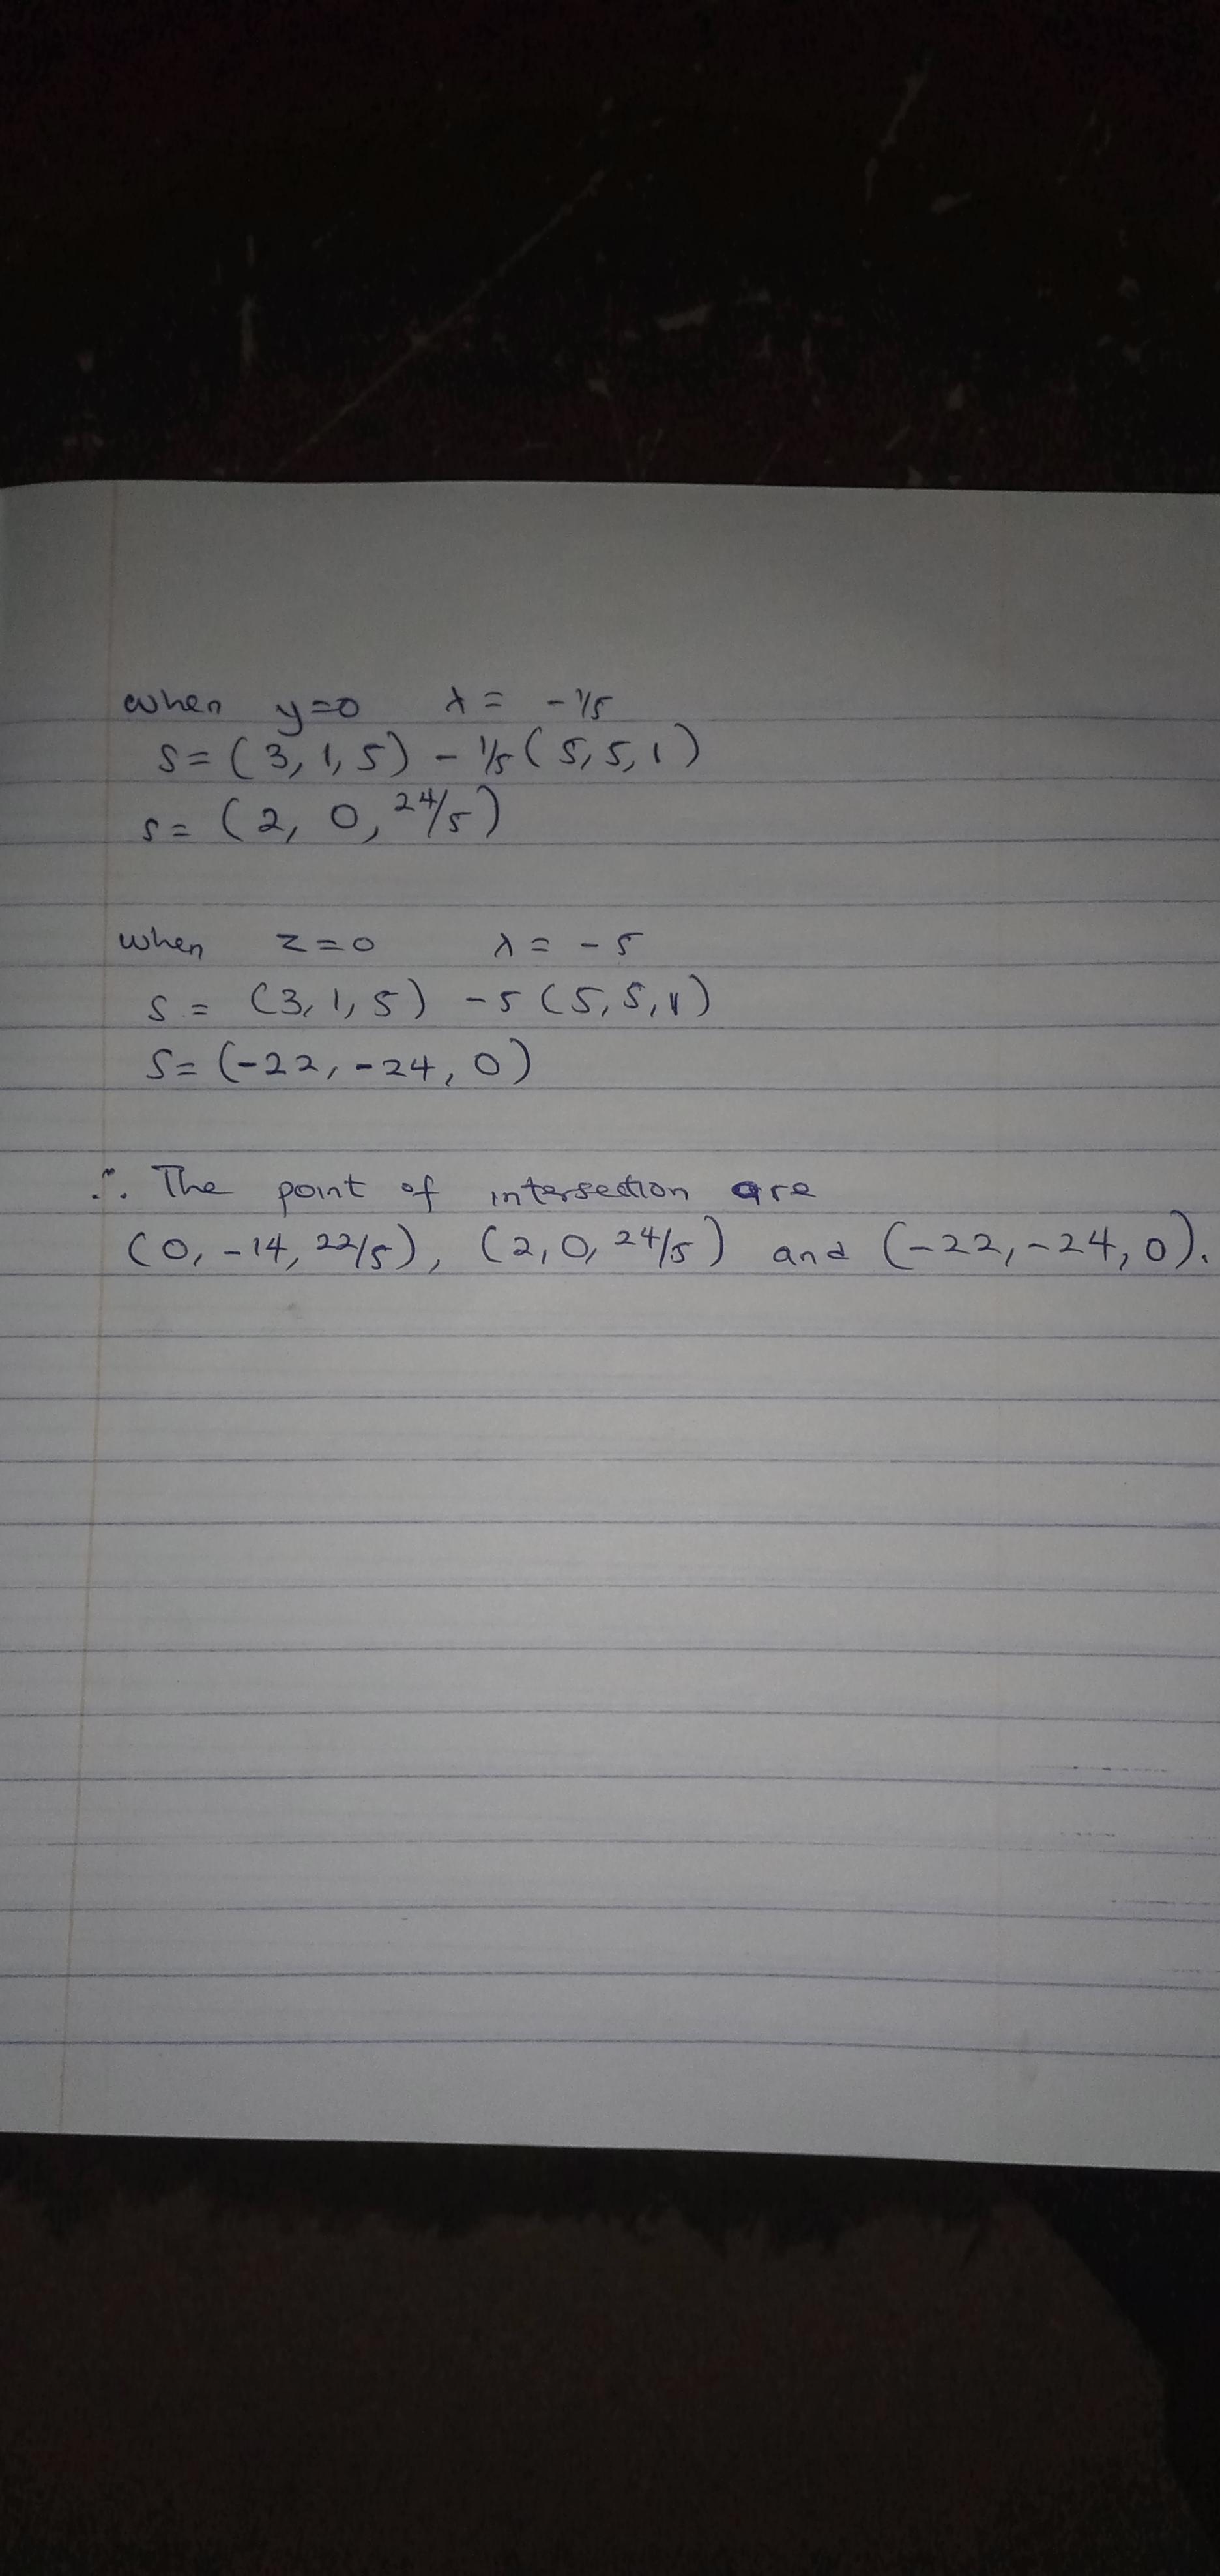 when y=0 λ= -1/5
S=(3,1,5) - 1/5(5,5,1)
S=(2, 0, 24/5)
when z=0 λ= -5
S= (3,1,5) -5(5,5,1)
S=(-22,-24,0)
∴ The point of intersection are
(0,-14,22/5), (2,0,24/5) and (-22,-24,0).